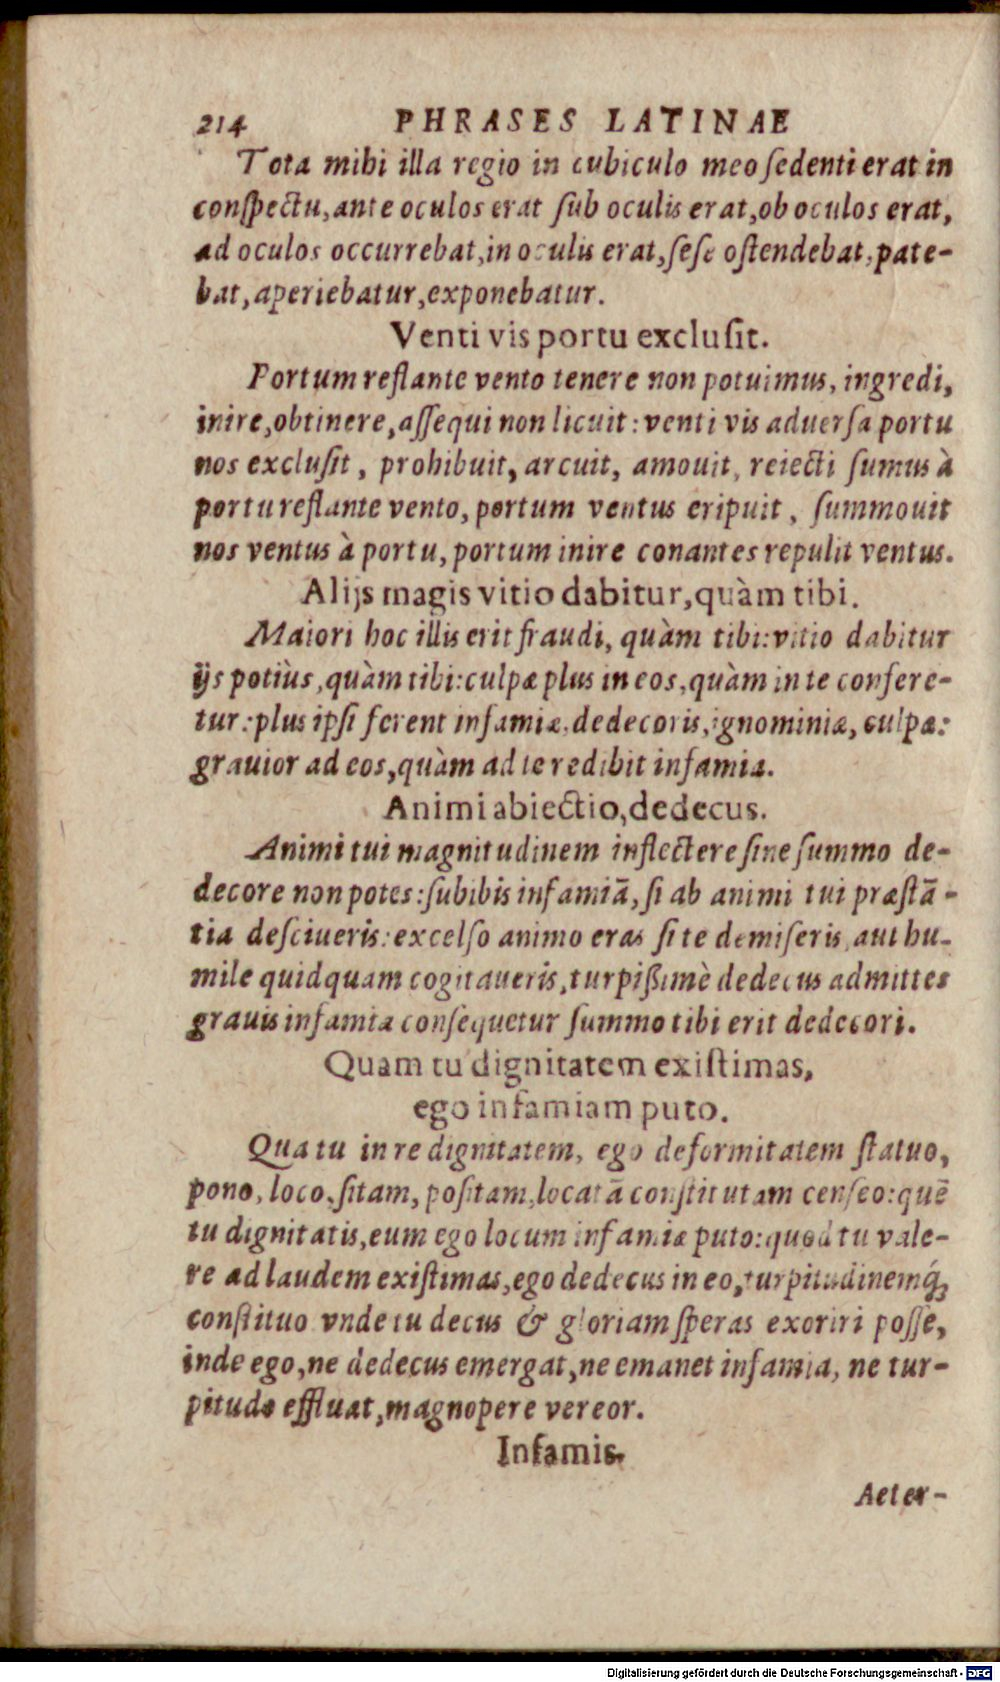 214 PHRASES LATINAE
Tota mihi illa regio in cubiculo meo ſedenti erat in
conſpectu, ante oculos erat ſub oculis erat, ob oculos erat,
ad oculos occurrebat, in oculis erat, ſeſe oſtendebat, pate-
bat, aperiebatur, exponebatur.
Venti vis portu excluſit.
Portum reflante vento tenere non potuimus, ingredi,
inire, obtinere, aſſequi non licuit: venti vis aduerſa portu
nos excluſit, prohibuit, arcuit, amouit, reiecti ſumus à
portu reflante vento, portum ventus eripuit, ſummouit
nos ventus à portu, portum inire conantes repulit ventus.
Alijs magis vitio dabitur, quàm tibi.
Maiori hoc illis erit fraudi, quàm tibi: vitio dabitur
ijs potiùs, quàm tibi: culpæ plus in eos, quàm in te confere-
tur: plus ipſi ferent infamiæ, dedecoris, ignominiæ, culpæ:
grauior ad eos, quàm ad te redibit infamia.
Animi abiectio, dedecus.
Animi tui magnitudinem inflectere ſine ſummo de-
decore non potes: ſubibis infamiā, ſi ab animi tui præſtā-
tia deſciueris: excelſo animo eras ſi te demiſeris, aut hu-
mile quidquam cogitaueris, turpißimè dedecus admittes
grauis infamia conſequetur ſummo tibi erit dedecori.
Quam tu dignitatem exiſtimas,
ego infamiam puto.
Qua tu in re dignitatem, ego deformitatem ſtatuo,
pono, loco, ſitam, poſitam, locatā conſtitutam cenſeo: quē
tu dignitatis, eum ego locum infamiæ puto: quod tu vale-
re ad laudem exiſtimas, ego dedecus in eo, turpitudinemq́;
conſtituo vnde tu decus & gloriam ſperas exoriri poſſe,
inde ego, ne dedecus emergat, ne emanet infamia, ne tur-
pitudo effluat, magnopere vereor.
Infamis.
Aeter-
Digitalisierung gefördert durch die Deutsche Forschungsgemeinschaft - DFG